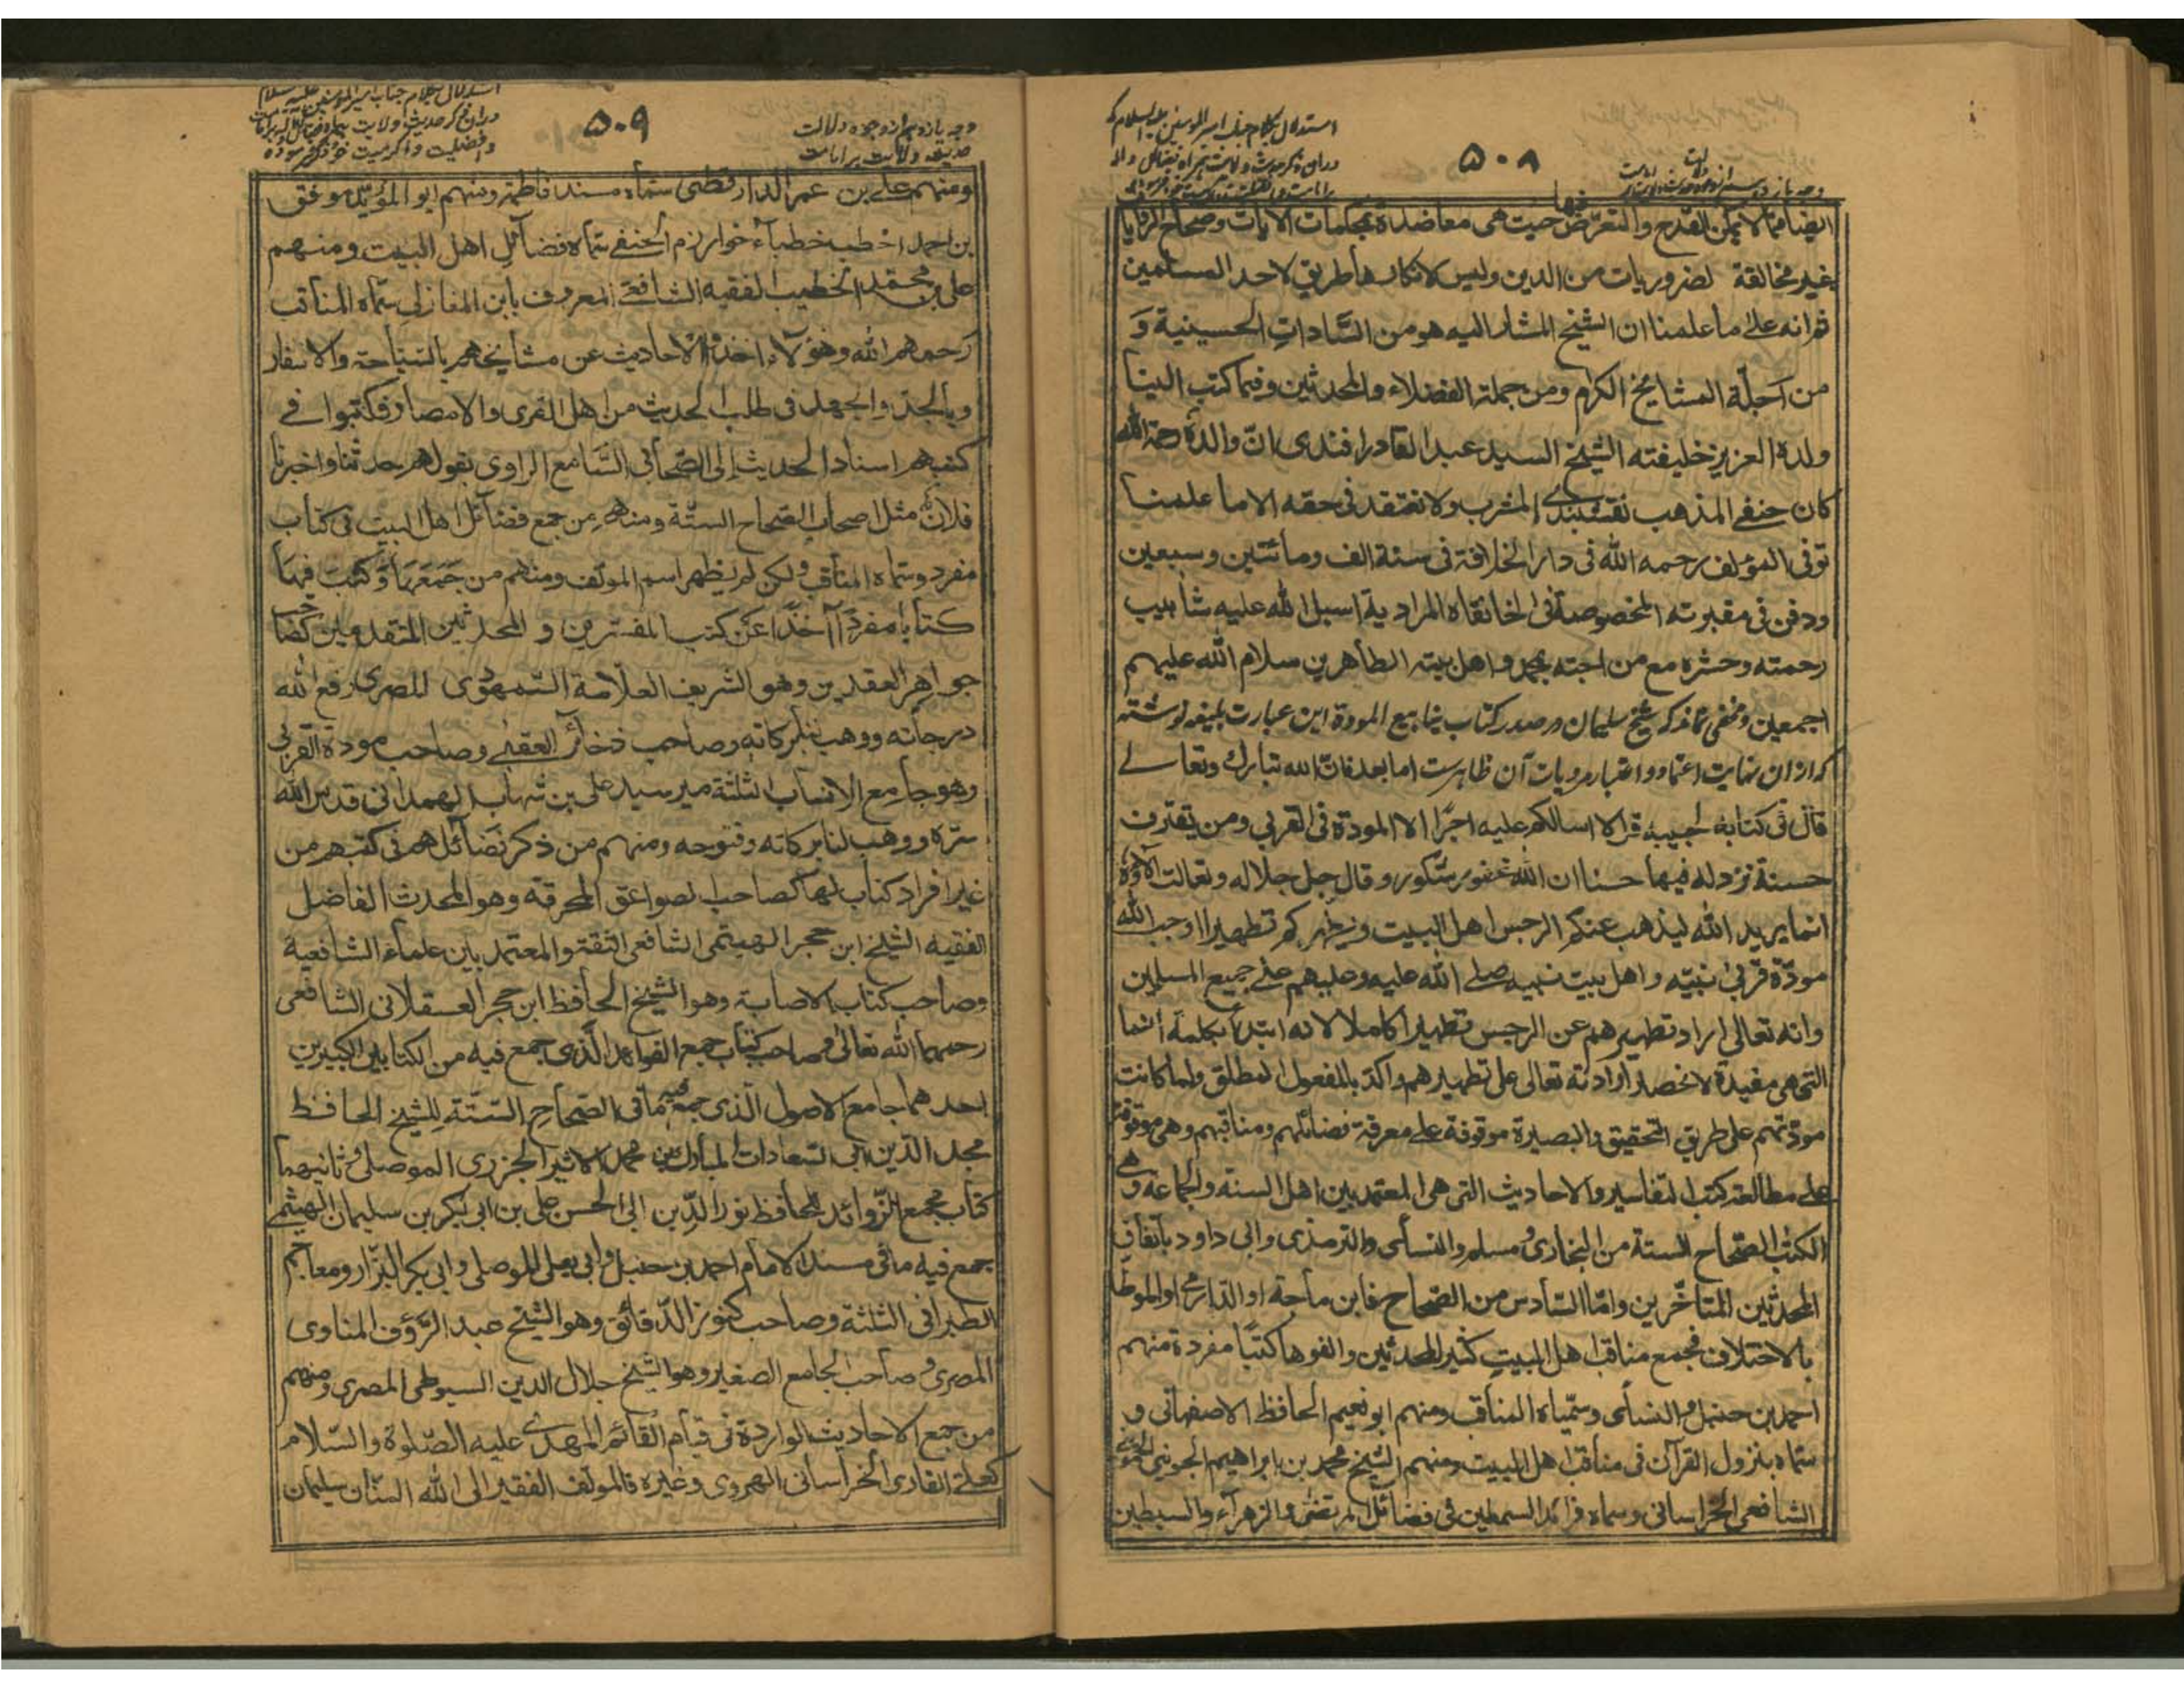 ۵۰۸
استدلال بکلام جناب امیر المومنین علیه السلام که
ایضا مما لا یمکن القدح والتعرض فیها حیث هی معاضدة بمحکمات الآیات وصحاح الروایا
بغیر مخالفة لضروریات من الدین ولیس لانکارها طریق لاحد المسلمین
ثم انه علی ما علمنا ان الشیخ المشار الیه هو من السادات الحسینیة و
من اجلة المشایخ الکرام ومن جملة الفضلاء والمحدثین وفیما کتب الینا
ولده العزیز خلیفته الشیخ السید عبد القادر افندی ان والده رحمة الله
کان حنفی المذهب نقشبندی المشرب ولا نعتقد فی حقه الا ما علمنا
توفی المؤلف رحمه الله فی دار الخلافة فی سنة الف ومائتین وسبعین
ودفن فی مقبرته المخصوصة فی الخانقاه المرادیة اسبل الله علیه شآبیب
رحمته وحشره مع من احبته بمحمد واهل بیته الطاهرین سلام الله علیهم
اجمعین ومخفی نماند که شیخ سلیمان در صدر کتاب ینابیع المودة این عبارت بلیغه نوشته
که ازان نهایت اعتماد واعتبار مرویات آن ظاهرست اما بعد فان الله تبارک وتعالی
قال فی کتابه لحبیبه قل لا اسالکم علیه اجرا الا المودة فی القربی ومن یقترف
حسنة نزد له فیها حسنا ان الله غفور شکور وقال جل جلاله وتعالت آلاؤه
انما یرید الله لیذهب عنکم الرجس اهل البیت ویطهرکم تطهیرا اوجب الله
مودة قربی نبیه واهل بیت نبیه صلی الله علیه وعلیهم علی جمیع المسلمین
وانه تعالی اراد تطهیرهم عن الرجس تطهیرا کاملا لانه ابتدأ بکلمة انما
التی هی مفیدة لانحصار ارادته تعالی علی تطهیرهم واکد بالمفعول المطلق ولما کانت
مودتهم علی طریق التحقیق والبصیرة موقوفة علی معرفة فضائلهم ومناقبهم وهی موقوفة
علی مطالعة کتب التفاسیر والاحادیث التی هی المعتمد بین اهل السنه والجماعه وهی
الکتب الصحاح الستة من البخاری ومسلم والنسائی والترمذی وابی داود باتفاق
المحدثین المتاخرین واما السادس من الصحاح فابن ماجة او الدارمی او الموطا
بالاختلاف فجمع مناقب اهل البیت کثیر المحدثین والفوها کتبا مفردة منهم
احمد بن حنبل والنسائی وسمیاه المناقب ومنهم ابو نعیم الحافظ الاصفهانی و
سماه بنزول القرآن فی مناقب اهل البیت ومنهم الشیخ محمد بن ابراهیم الجوینی
الشافعی الخراسانی وسماه فرائد السمطین فی فضائل المرتضی والزهراء والسبطین
۵۰۹
وجه یازدهم از وجوه دلالت
حدیث ولایت بر امامت
ومنهم علی بن عمر الدارقطنی سماه مسند فاطمة ومنهم ابو المؤید موفق
بن احمد اخطب خطباء خوارزم الحنفی سماه فضائل اهل البیت ومنهم
علی بن محمد الخطیب الفقیه الشافعی المعروف بابن المغازلی سماه المناقب
رحمهم الله وهؤلاء اخذوا الاحادیث عن مشایخهم بالسیاحة والاسفار
وبالجد والجهد فی طلب الحدیث من اهل القری والامصار فکتبوا فی
کتبهم اسناد الحدیث الی الصحابی السامع الراوی بقولهم حدثنا واخبرنا
فلان مثل اصحاب الصحاح الستة ومنهم من جمع فضائل اهل البیت فی کتاب
مفرد وسماه المناقب ولکن لم یظهر اسم المولف ومنهم من جمعها وکتب فیها
کتابا مفردا آخذا عن کتب المفسرین و المحدثین المتقدمین کصاحب
جواهر العقدین وهو الشریف العلامة السمهودی المصری رفع الله
درجاته ووهب لنا برکاته وصاحب ذخائر العقبی وصاحب مودة القربی
وهو جامع الانساب الثلثة میر سید علی بن شهاب الهمدانی قدس الله
سره ووهب لنا برکاته وفتوحه ومنهم من ذکر فضائلهم فی کتبهم من
غیر افراد کتاب لها کصاحب الصواعق المحرقة وهو المحدث الفاضل
الفقیه الشیخ ابن حجر الهیتمی الشافعی الثقة والمعتمد بین علماء الشافعیة
وصاحب کتاب الاصابة وهو الشیخ الحافظ ابن حجر العسقلانی الشافعی
رحمهما الله تعالی وصاحب کتاب جمع الفوائد الذی جمع فیه من الکتابین الکبیرین
احدهما جامع الاصول الذی جمع فیه ما فی الصحاح الستة للشیخ الحافظ
مجد الدین ابی السعادات المبارک بن محمد الاثیر الجزری الموصلی وثانیهما
کتاب مجمع الزوائد للحافظ نور الدین ابی الحسن علی بن ابی بکر بن سلیمان الهیثمی
جمع فیه ما فی مسند الامام احمد بن حنبل وابی یعلی الموصلی وابی بکر البزار ومعاجم
الطبرانی الثلثة وصاحب کنوز الدقائق وهو الشیخ عبد الرؤف المناوی
المصری وصاحب الجامع الصغیر وهو الشیخ جلال الدین السیوطی المصری ومنهم
من جمع الاحادیث الواردة فی قیام القائم المهدی علیه الصلوة والسلام
کعلی القاری الخراسانی الهروی وغیره فالمولف الفقیر الی الله المنان سلیمان